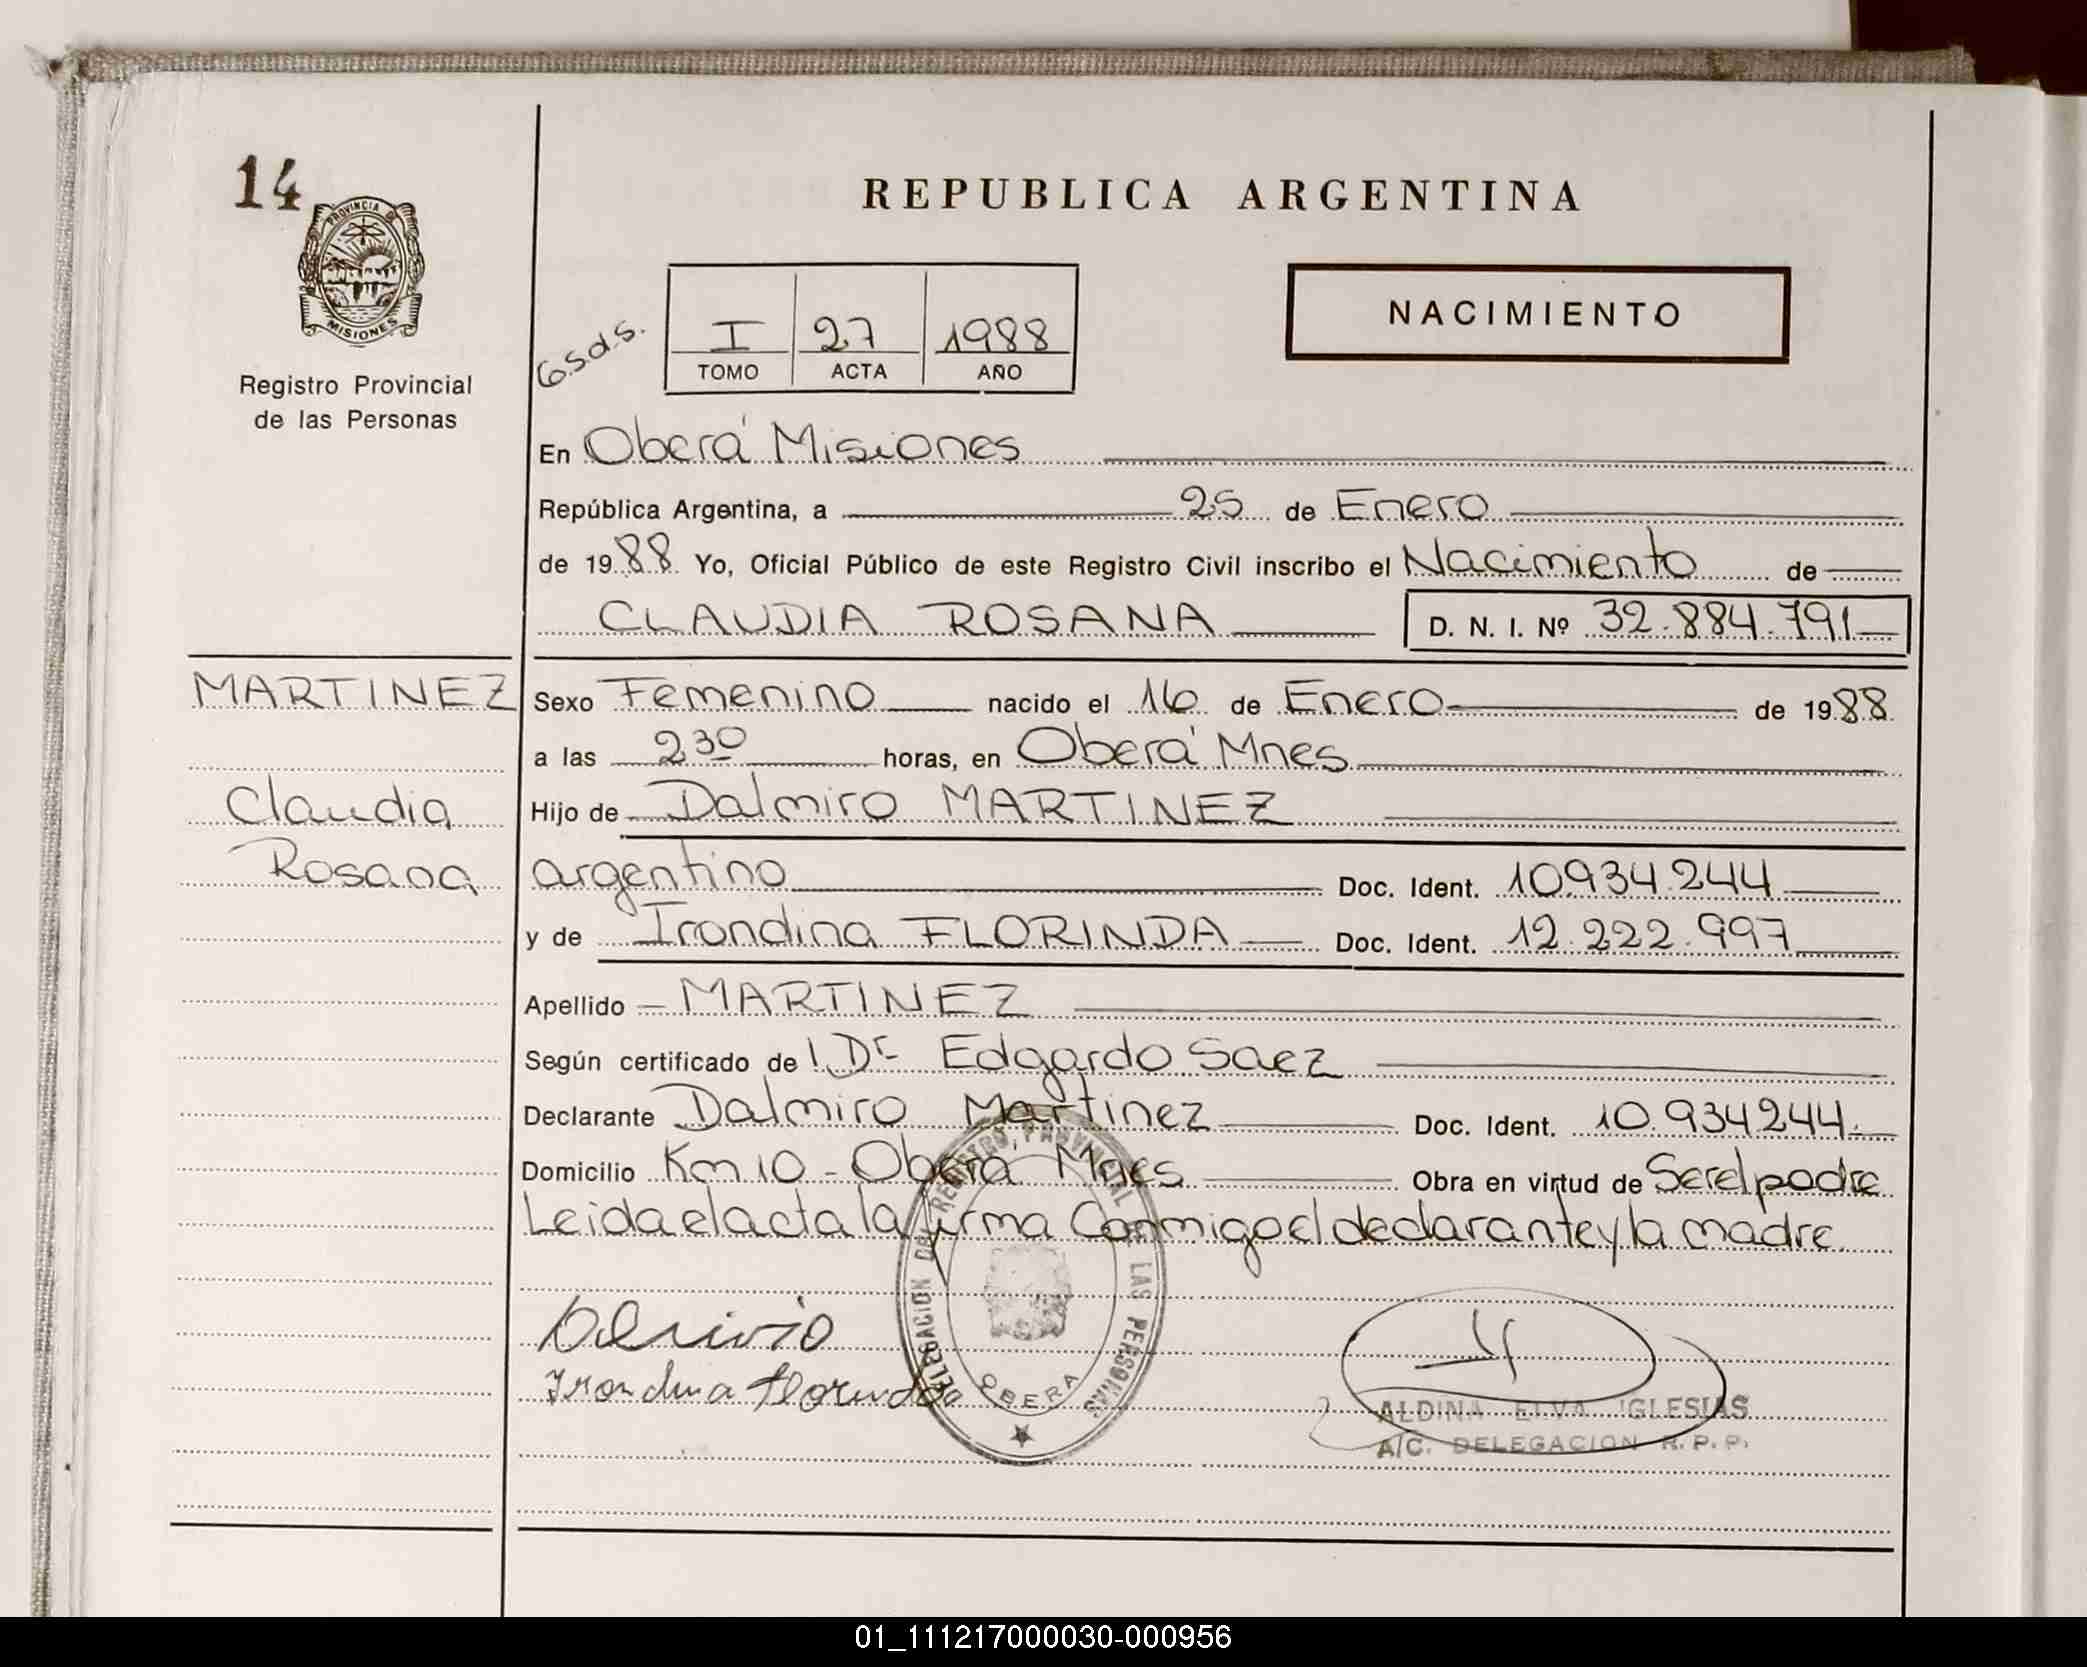 14
PROVINCIA DE
MISIONES
Registro Provincial
de las Personas
REPUBLICA ARGENTINA
NACIMIENTO
G.s.d.s.
I 27 1988
TOMO ACTA AÑO
En Oberá Misiones
República Argentina, a 25 de Enero
de 1988 Yo, Oficial Público de este Registro Civil inscribo el Nacimiento de
CLAUDIA ROSANA D. N. I. Nº 32.884.791
MARTINEZ Sexo Femenino nacido el 16 de Enero de 1988
a las 2 30 horas, en Oberá Mnes
Claudia Hijo de Dalmiro MARTINEZ
Rosana argentino Doc. Ident. 10.934.244
y de Irondina FLORINDA Doc. Ident. 12.222.997
Apellido MARTINEZ
Según certificado de l Dr Edgardo Saez
Declarante Dalmiro Martinez Doc. Ident. 10.934244.
Domicilio Km 10 - Oberá Mnes Obra en virtud de Ser el padre
Leida el acta la firma Conmigo el declarante y la madre.
DELEGACION DEL REGISTRO PROVINCIAL DE LAS PERSONAS
OBERA
Irondina Florinda
ALDINA ELVA IGLESIAS
A/C. DELEGACION R. P. P.
01_111217000030-000956